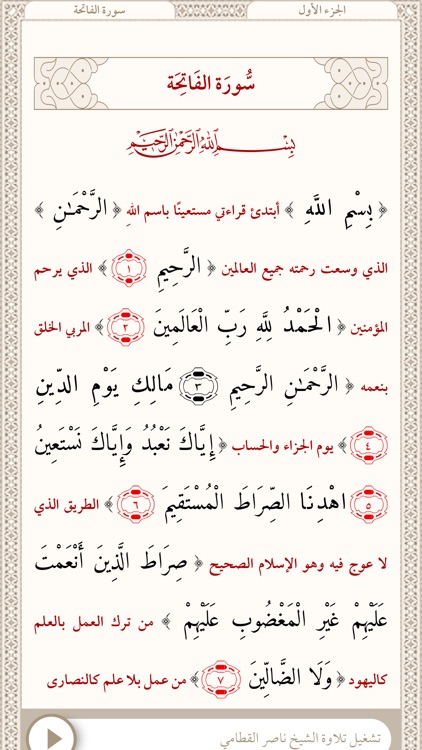 الجزء الأول
سورة الفاتحة
سُّورَة الفَاتِحَة
بِسْمِ اللَّهِ الرَّحْمَٰنِ الرَّحِيمِ
﴿ بِسْمِ اللَّهِ ﴾ أبتدئ قراءتي مستعينًا باسم اللهِ ﴿ الرَّحْمَـٰنِ ﴾
الذي وسعت رحمته جميع العالمين ﴿ الرَّحِيمِ ١ ﴾ الذي يرحم
المؤمنين ﴿ الْحَمْدُ لِلَّهِ رَبِّ الْعَالَمِينَ ٢ ﴾ المربي الخلق
بنعمه ﴿ الرَّحْمَـٰنِ الرَّحِيمِ ٣ مَالِكِ يَوْمِ الدِّينِ
٤ ﴾ يوم الجزاء والحساب ﴿ إِيَّاكَ نَعْبُدُ وَإِيَّاكَ نَسْتَعِينُ
٥ اهْدِنَا الصِّرَاطَ الْمُسْتَقِيمَ ٦ ﴾ الطريق الذي
لا عوج فيه وهو الإسلام الصحيح ﴿ صِرَاطَ الَّذِينَ أَنْعَمْتَ
عَلَيْهِمْ غَيْرِ الْمَغْضُوبِ عَلَيْهِمْ ﴾ من ترك العمل بالعلم
كاليهود ﴿ وَلَا الضَّالِّينَ ٧ ﴾ من عمل بلا علم كالنصارى
تشغيل تلاوة الشيخ ناصر القطامي